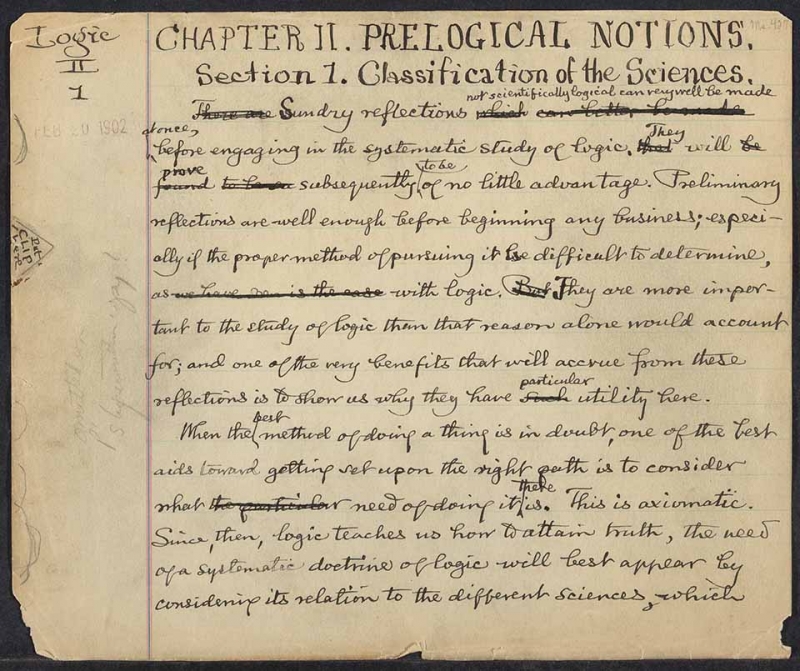 Logic
II
1
CHAPTER II. PRELOGICAL NOTIONS.
Section 1. Classification of the Sciences.
not scientifically logical can very well be made
There are Sundry reflections which can better be made
FEB 20 1902
at once,
before engaging in the systematic study of logic. that They will be
prove
found to be subsequently to be of no little advantage. Preliminary
reflections are well enough before beginning any business; especi-
ally if the proper method of pursuing it be difficult to determine,
as we have seen is the case with logic. But They are more impor-
tant to the study of logic than that reason alone would account
for; and one of the very benefits that will accrue from these
reflections is to show us why they have such particular utility here.
When the best method of doing a thing is in doubt, one of the best
aids toward getting set upon the right path is to consider
what the particular need of doing it there is. This is axiomatic.
Since, then, logic teaches us how to attain truth, the need
of a systematic doctrine of logic will best appear by
considering its relation to the different sciences, which
Put
CLIP
here